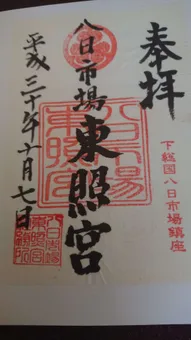 奉拝
下総国八日市場鎮座
八日市場東照宮
八日市場
東照宮
平成三十年十月七日
八日市場
東照宮